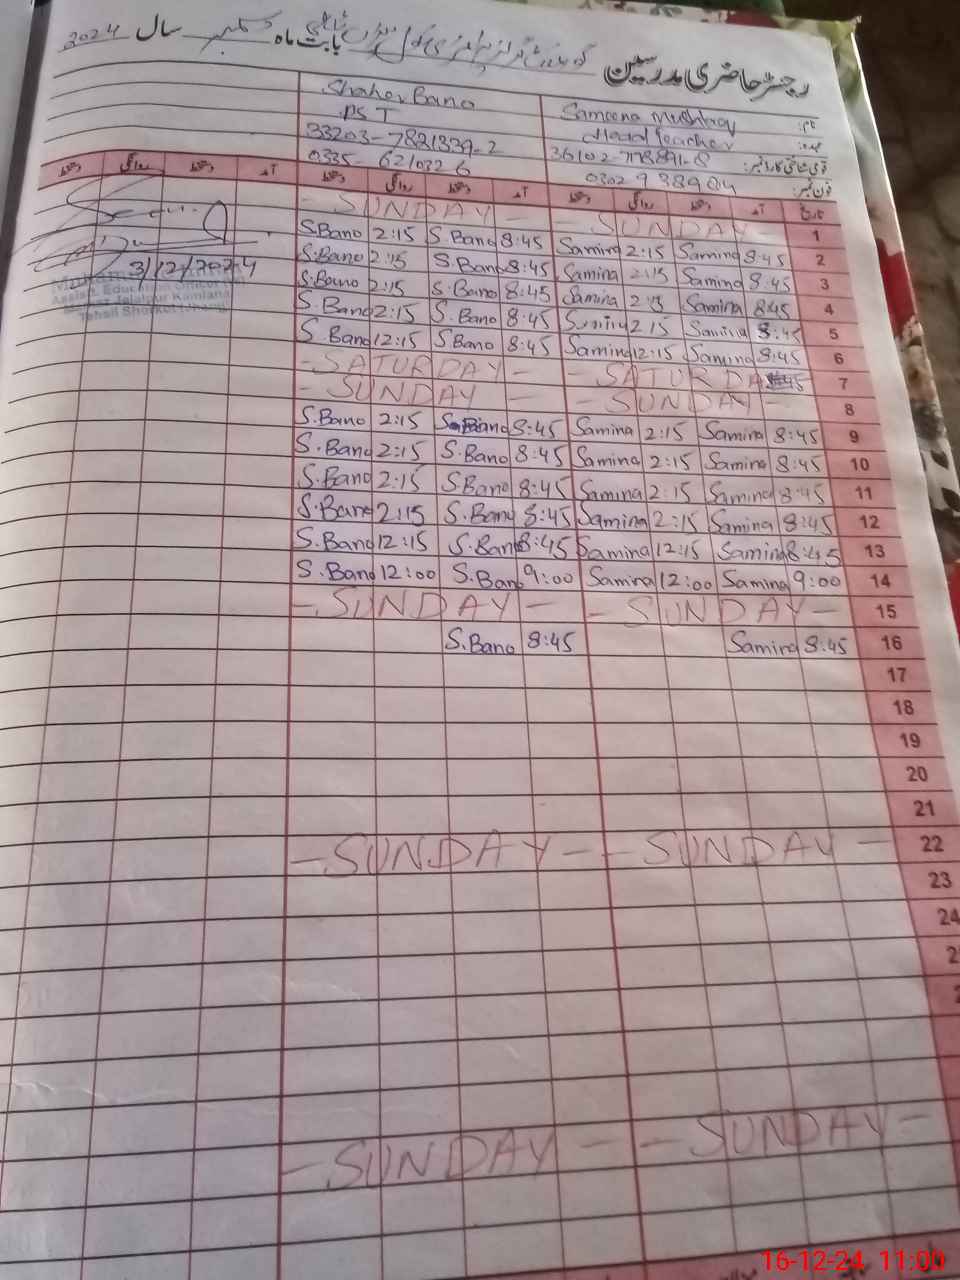 رجسٹر حاضری مدرسین بابت ماہ دسمبر سال 2024
نام: Sameena Mushtaq Shaher Bano
عہدہ: Head Teacher PST
قومی شناختی کارڈ نمبر: 33203-7821339-2
فون نمبر: 0335-6210326
تاریخ آمد دستخط روانگی دستخط آمد دستخط روانگی دستخط آمد دستخط روانگی دستخط
- SUNDAY - - SUNDAY - 1
S.Bano 2:15 S.Bano 8:45 Samina 2:15 Samina 8:45 2
S.Bano 2:15 S.Bano 8:45 Samina 2:15 Samina 8:45 3
S.Bano 2:15 S.Bano 8:45 Samina 2:15 Samina 8:45 4
S.Bano 2:15 S.Bano 8:45 Samina 2:15 Samina 8:45 5
S.Bano 12:15 S.Bano 8:45 Samina 12:15 Samina 8:45 6
- SATURDAY - - SATURDA 7
- SUNDAY - - SUNDAY - 8
S.Bano 2:15 S.Bano 8:45 Samina 2:15 Samina 8:45 9
S.Bano 2:15 S.Bano 8:45 Samina 2:15 Samina 8:45 10
S.Bano 2:15 S.Bano 8:45 Samina 2:15 Samina 8:45 11
S.Bano 2:15 S.Bano 8:45 Samina 2:15 Samina 8:45 12
S.Bano 12:15 S.Bano 8:45 Samina 12:15 Samina 8:45 13
S.Bano 12:00 S.Bano 9:00 Samina 12:00 Samina 9:00 14
- SUNDAY - - SUNDAY - 15
S.Bano 8:45 Samina 8:45 16
17
18
19
20
21
- SUNDAY - - SUNDAY - 22
23
24
- SUNDAY - - SUNDAY -
3/12/2024
Education Officer
Jalalpur Kamlana
Tehsil Shorkot
16-12-24 11:00